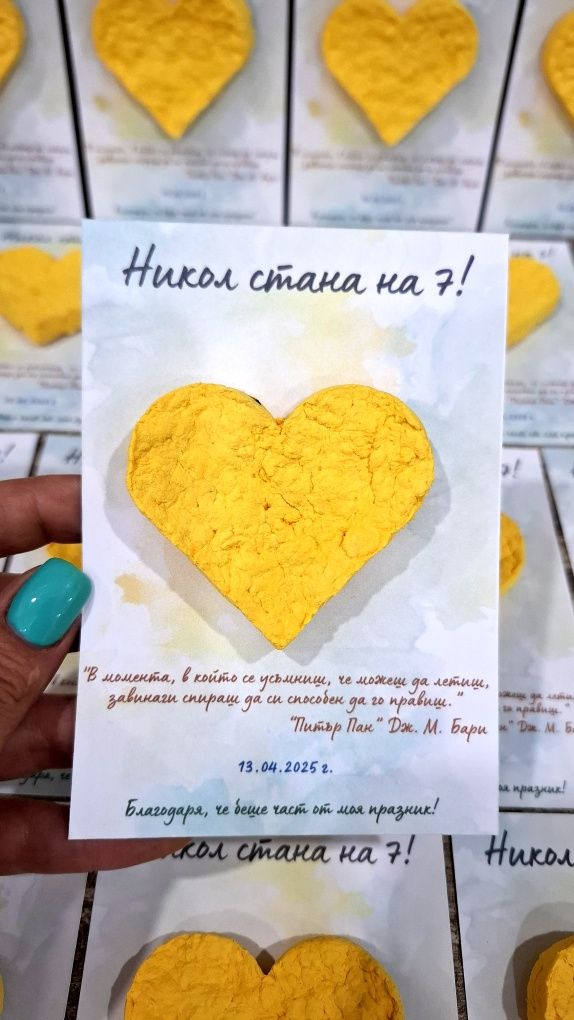 Никол стана на 7!
"В момента, в който се усъмниш, че можеш да летиш,
завинаги спираш да си способен да го правиш."
"Питър Пан" Дж. М. Бари
13.04.2025 г.
Благодаря, че беше част от моя празник!
кол стана на 7!
Никол
"Дж. М. Б
моя празник!